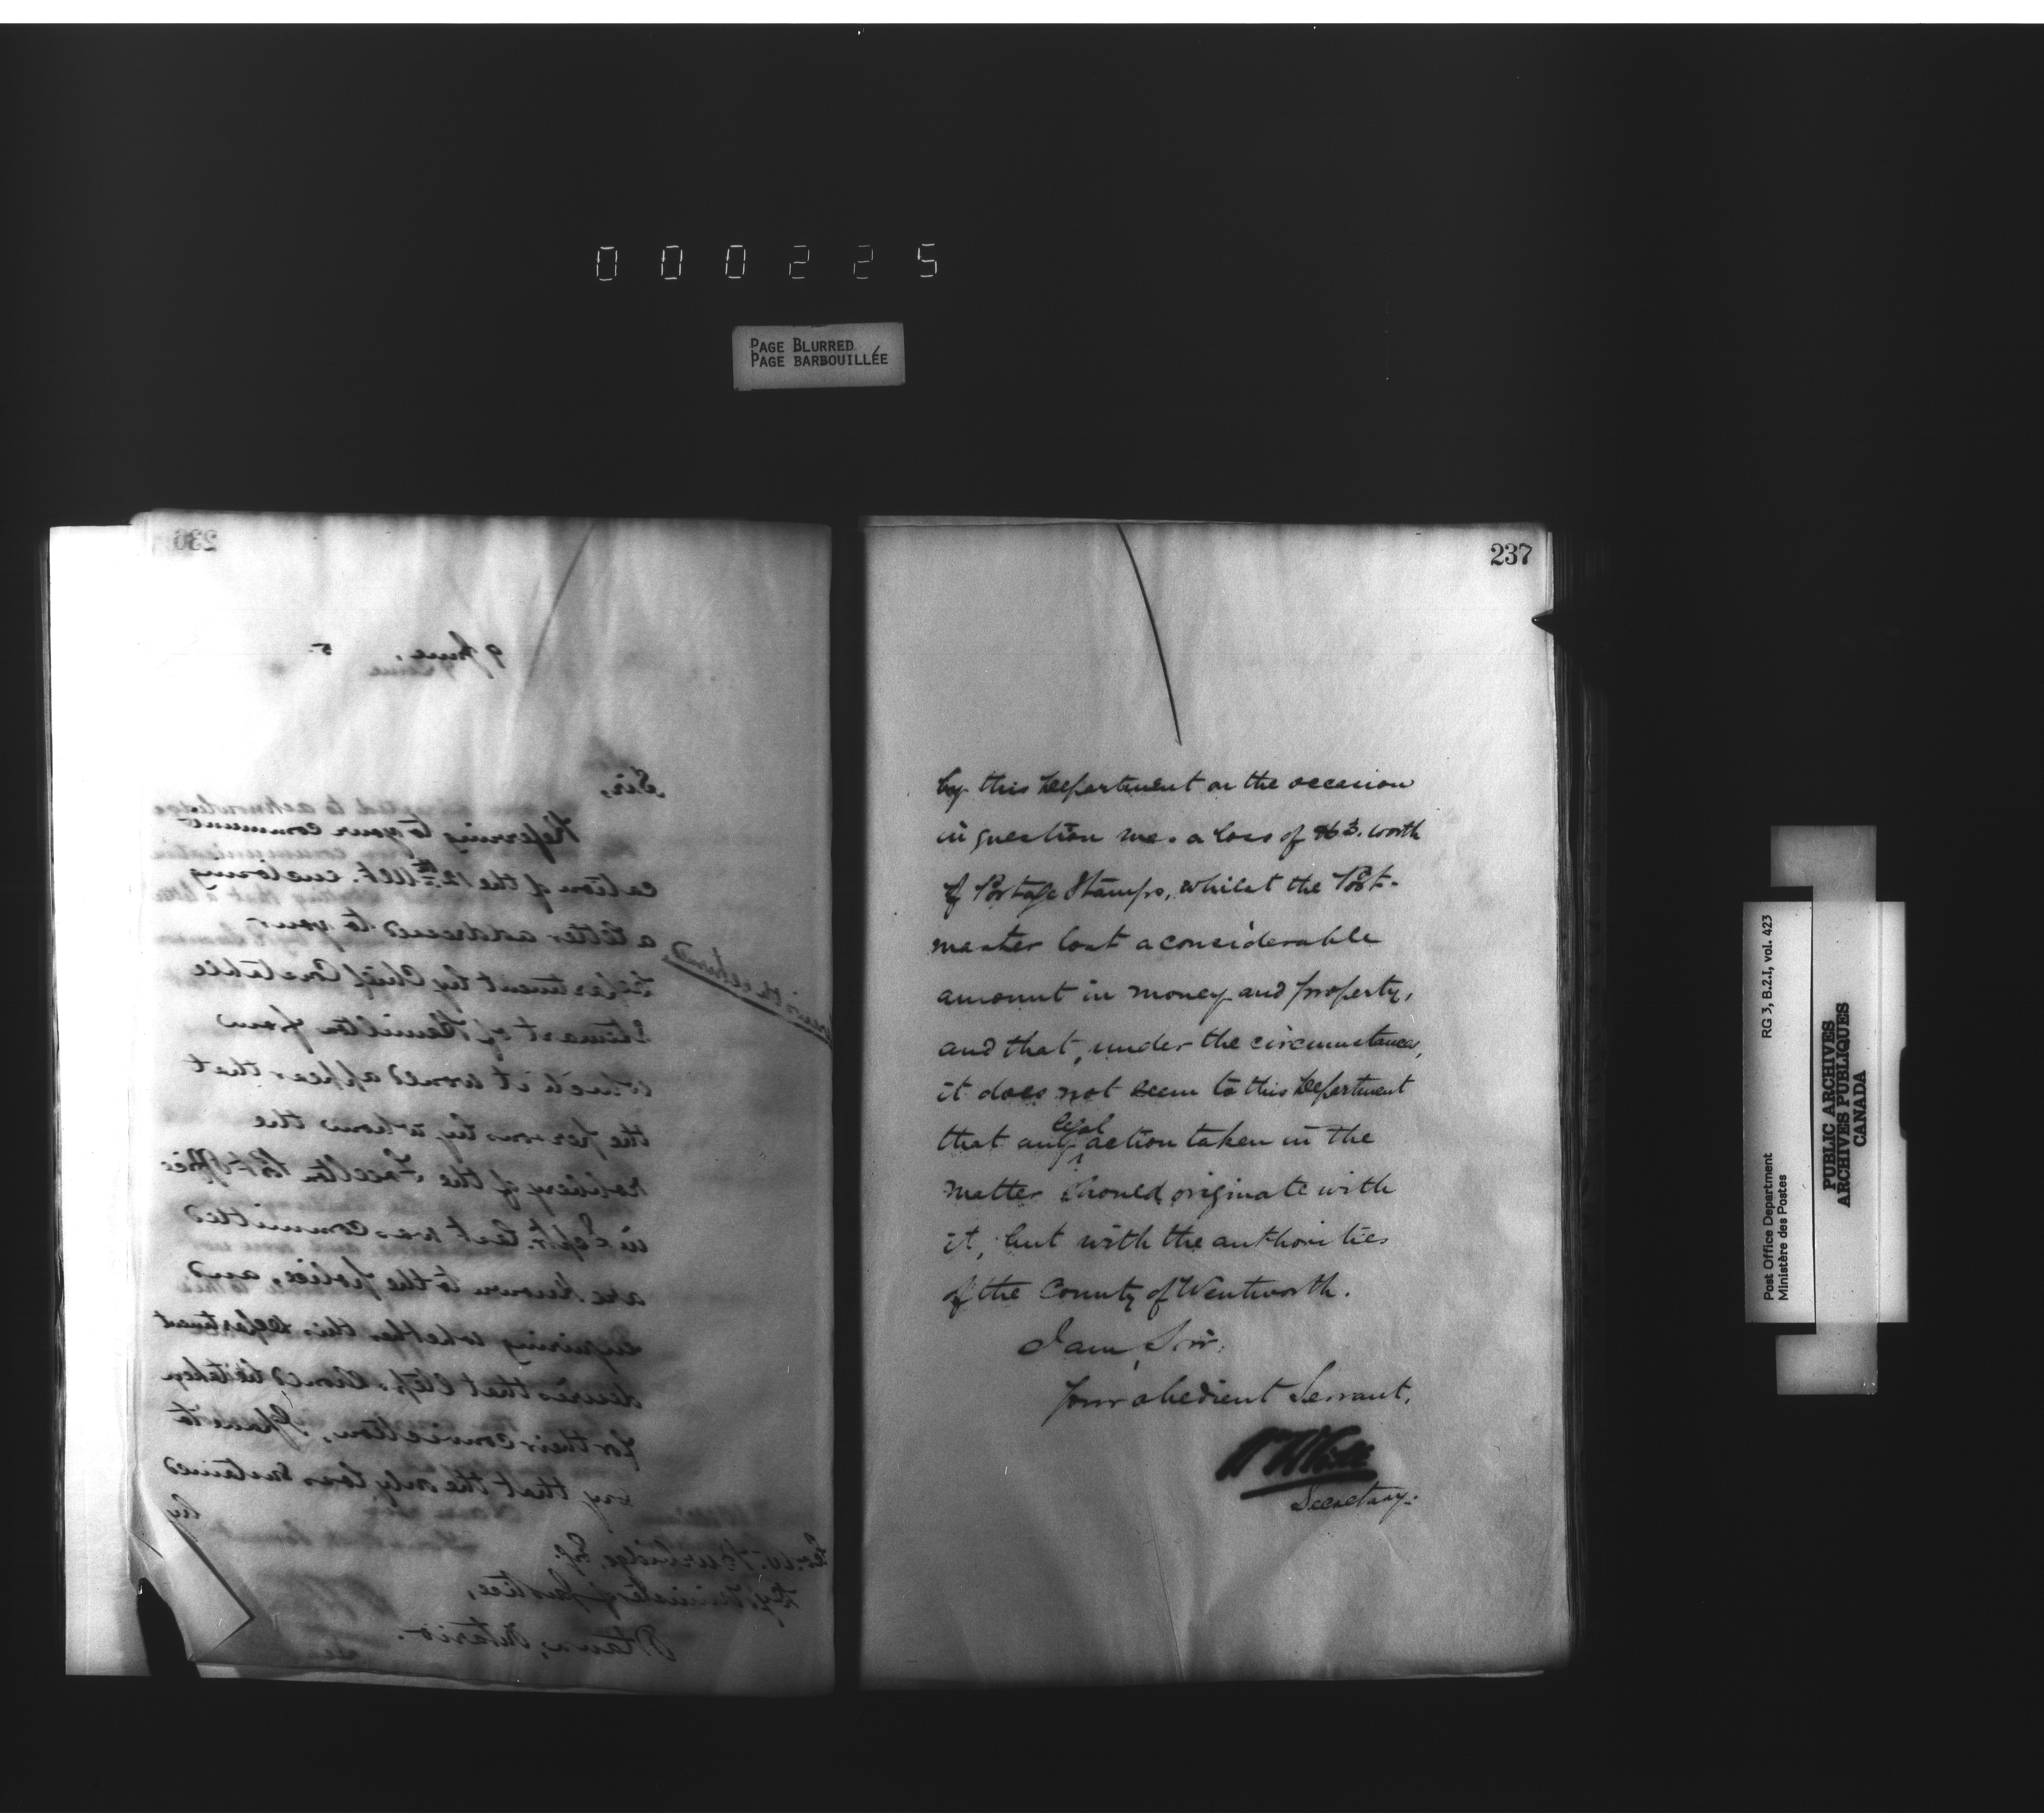 000225
PAGE BLURRED
PAGE BARBOUILLÉE
236
9 June, 5
Sir,
Referring to your communi-
cation of the 12th Ult. enclosing
a letter addressed to your
Department by Chief Constable
Stewart of Hamilton from
which it would appear that
the persons by whom the
robbery of the Freelton Post Office
in Septr. last was committed
are known to the police, and
enquiring whether this Department
desires that steps should be taken
for their conviction, I have to
say that the only loss sustained
by
Geo. W. Burbidge, Esq.
Dy. Minister of Justice,
Ottawa, Ontario.
237
by this Department on the occasion
in question was a loss of worth
of Postage Stamps, whilst the Post-
master lost a considerable
amount in money and property,
and that, under the circumstances,
it does not seem to this Department
that any legal action taken in the
matter should originate with
it, but with the authorities
of the County of Wentworth.
I am, Sir,
Your obedient Servant,
Secretary.
Post Office Department
Ministère des Postes
RG 3, B.2.I, vol. 423
PUBLIC ARCHIVES
ARCHIVES PUBLIQUES
CANADA